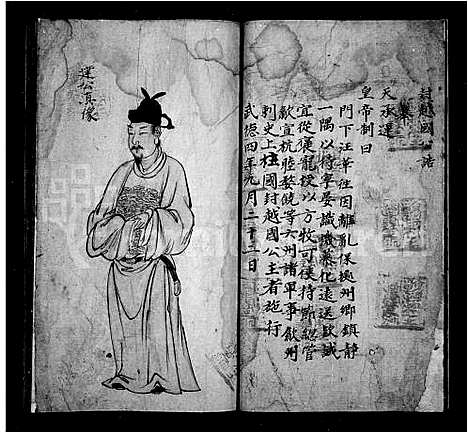 封越國公誥
奉
天承運
皇帝制曰
門下汪華往因離亂保據州鄉鎮靜
一隅以待寧晏識機慕化遠送款誠
宜從褒寵授以方牧可使持節總管
歙宣杭睦婺饒等六州諸軍事歙州
刺史上柱國封越國公主者施行
武德四年九月二十二日
公真像